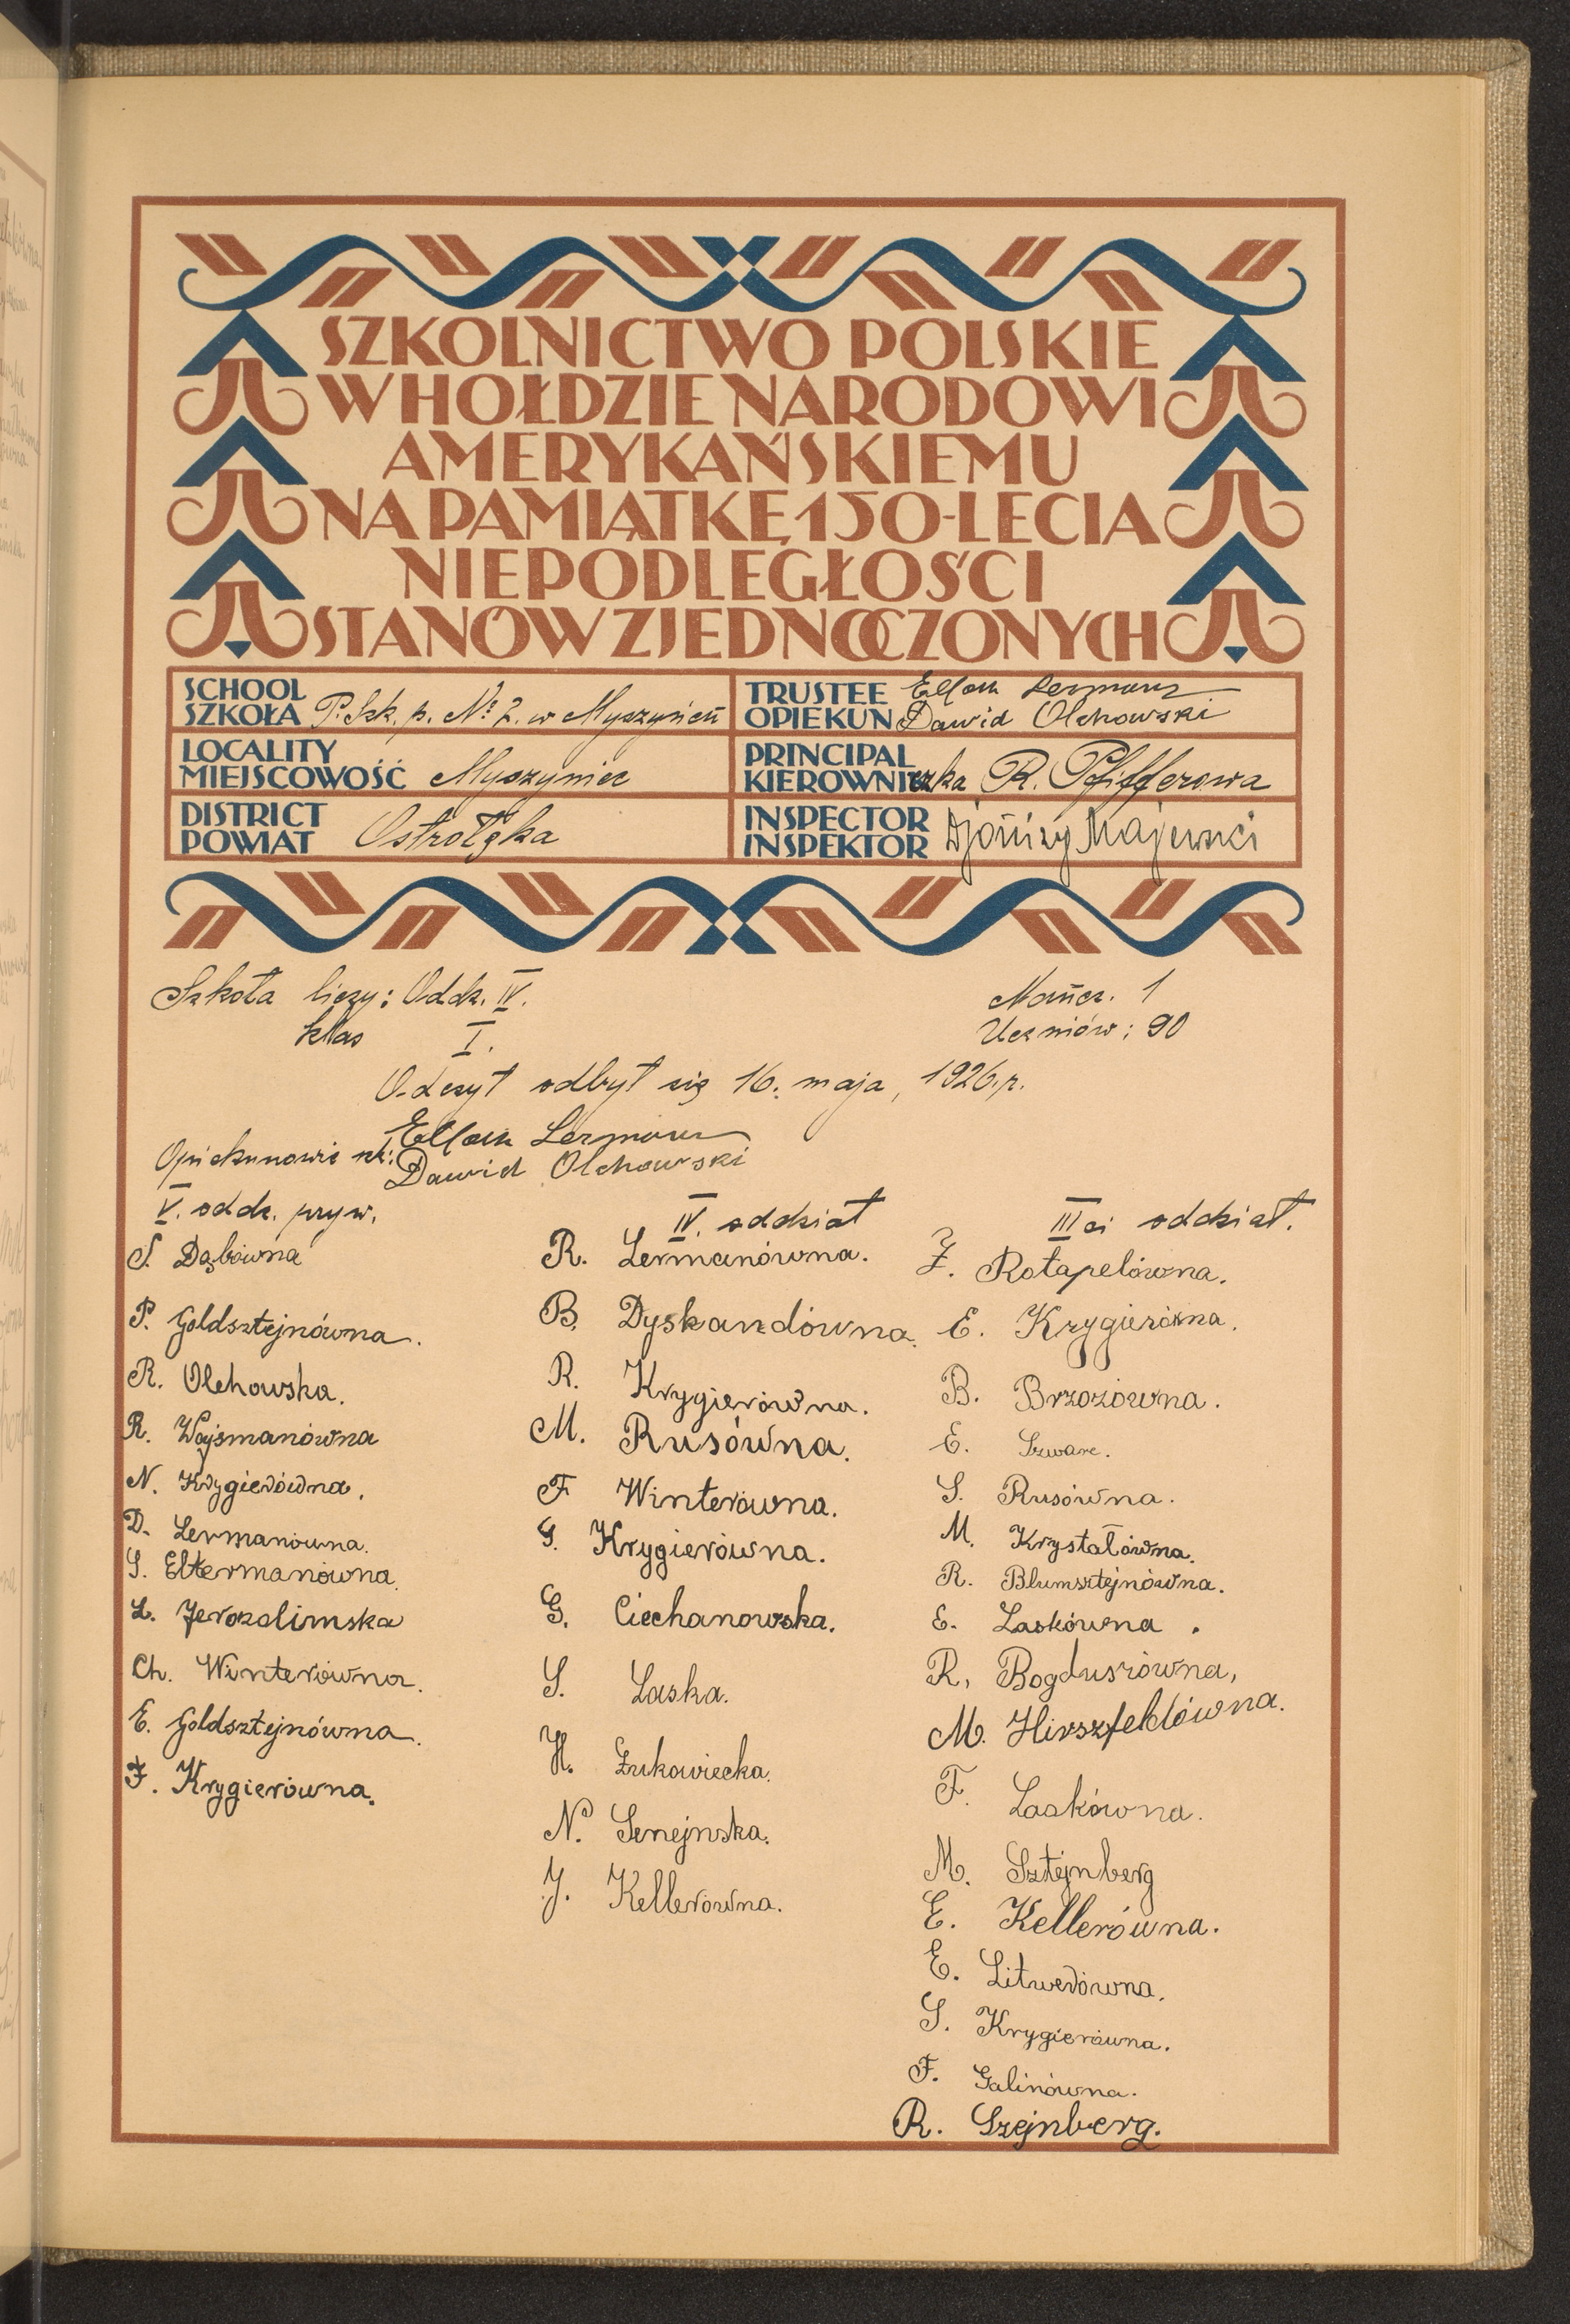 SZKOLNICTWO POLSKIE
W HOŁDZIE NARODOWI
AMERYKAŃSKIEMU
NA PAMIĄTKĘ 150-LECIA
NIEPODLEGŁOŚCI
STANÓW ZJEDNOCZONYCH
SCHOOL
SZKOŁA P. Szk. p. № 2. w Myszyńcu
LOCALITY
MIEJSCOWOŚĆ Myszyniec
DISTRICT
POWIAT Ostrołęka
TRUSTEE Lerman
OPIEKUN Dawid Olchowski
PRINCIPAL
KIEROWNICzka R. Pfifferowa
INSPECTOR
INSPEKTOR Majewski
Szkoła liczy: Oddz. IV.
klas I.
Naucz. 1
Uczniów: 90
Odczyt odbył się 16. maja, 1926. r.
Lerman
Opiekunowie szk:
Dawid Olchowski
V. oddz. pryw.
S. Dąbówna
P. Goldsztejnówna.
R. Olchowska.
R. Wajsmanówna
N. Krygierówna.
D. Lermanówna.
S. Eltermanówna.
L. Jerozolimska
Ch. Winterówna.
E. Goldsztejnówna.
F. Krygierówna.
IV. oddział
R. Lermanówna.
B. Dyskandówna.
R. Krygierówna.
M. Rusówna.
F Winterówna.
G. Krygierówna.
G. Ciechanowska.
S. Laska.
H. Żukowiecka.
N. Senejnska.
J. Kellerówna.
III ci oddział.
Z. Rotapelówna.
E. Krygierówna.
B. Brzozówna.
E. Szwarc.
S. Rusówna.
M. Kryształówna.
R. Blumsztejnówna.
E. Laskówna.
R. Bogduszówna,
M. Hirszfeldówna.
F. Laskówna.
M. Sztejnberg
E. Kellerówna.
E. Litwerówna.
S. Krygierówna.
F. Galinówna.
R. Szejnberg.